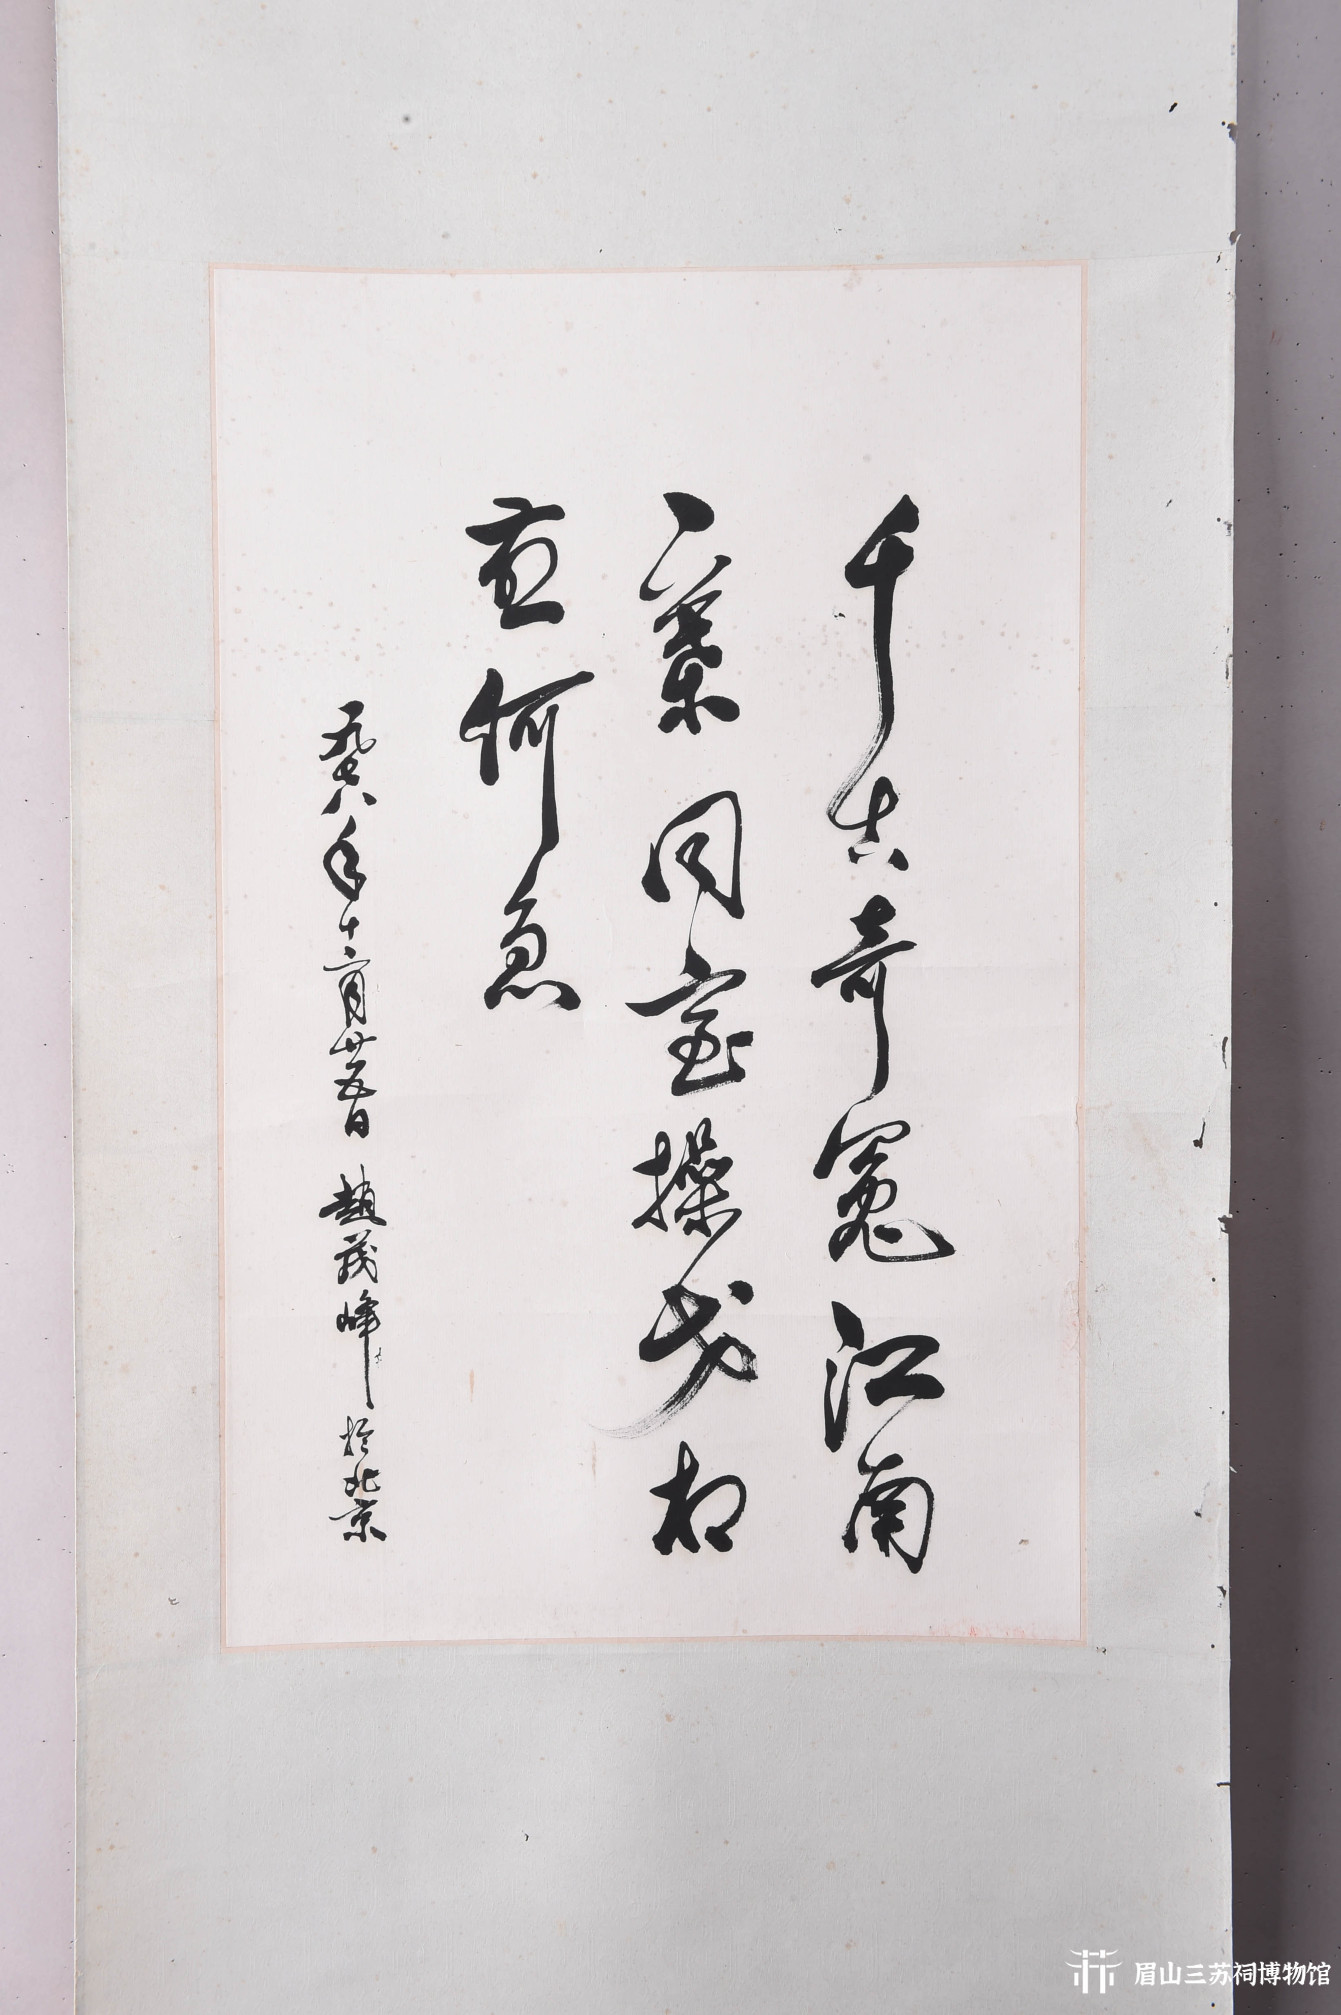 千古奇冤江南
一葉同室操戈相
煎何急
一九七八年十二月廿五日 趙茂峰於北京
眉山三苏祠博物馆